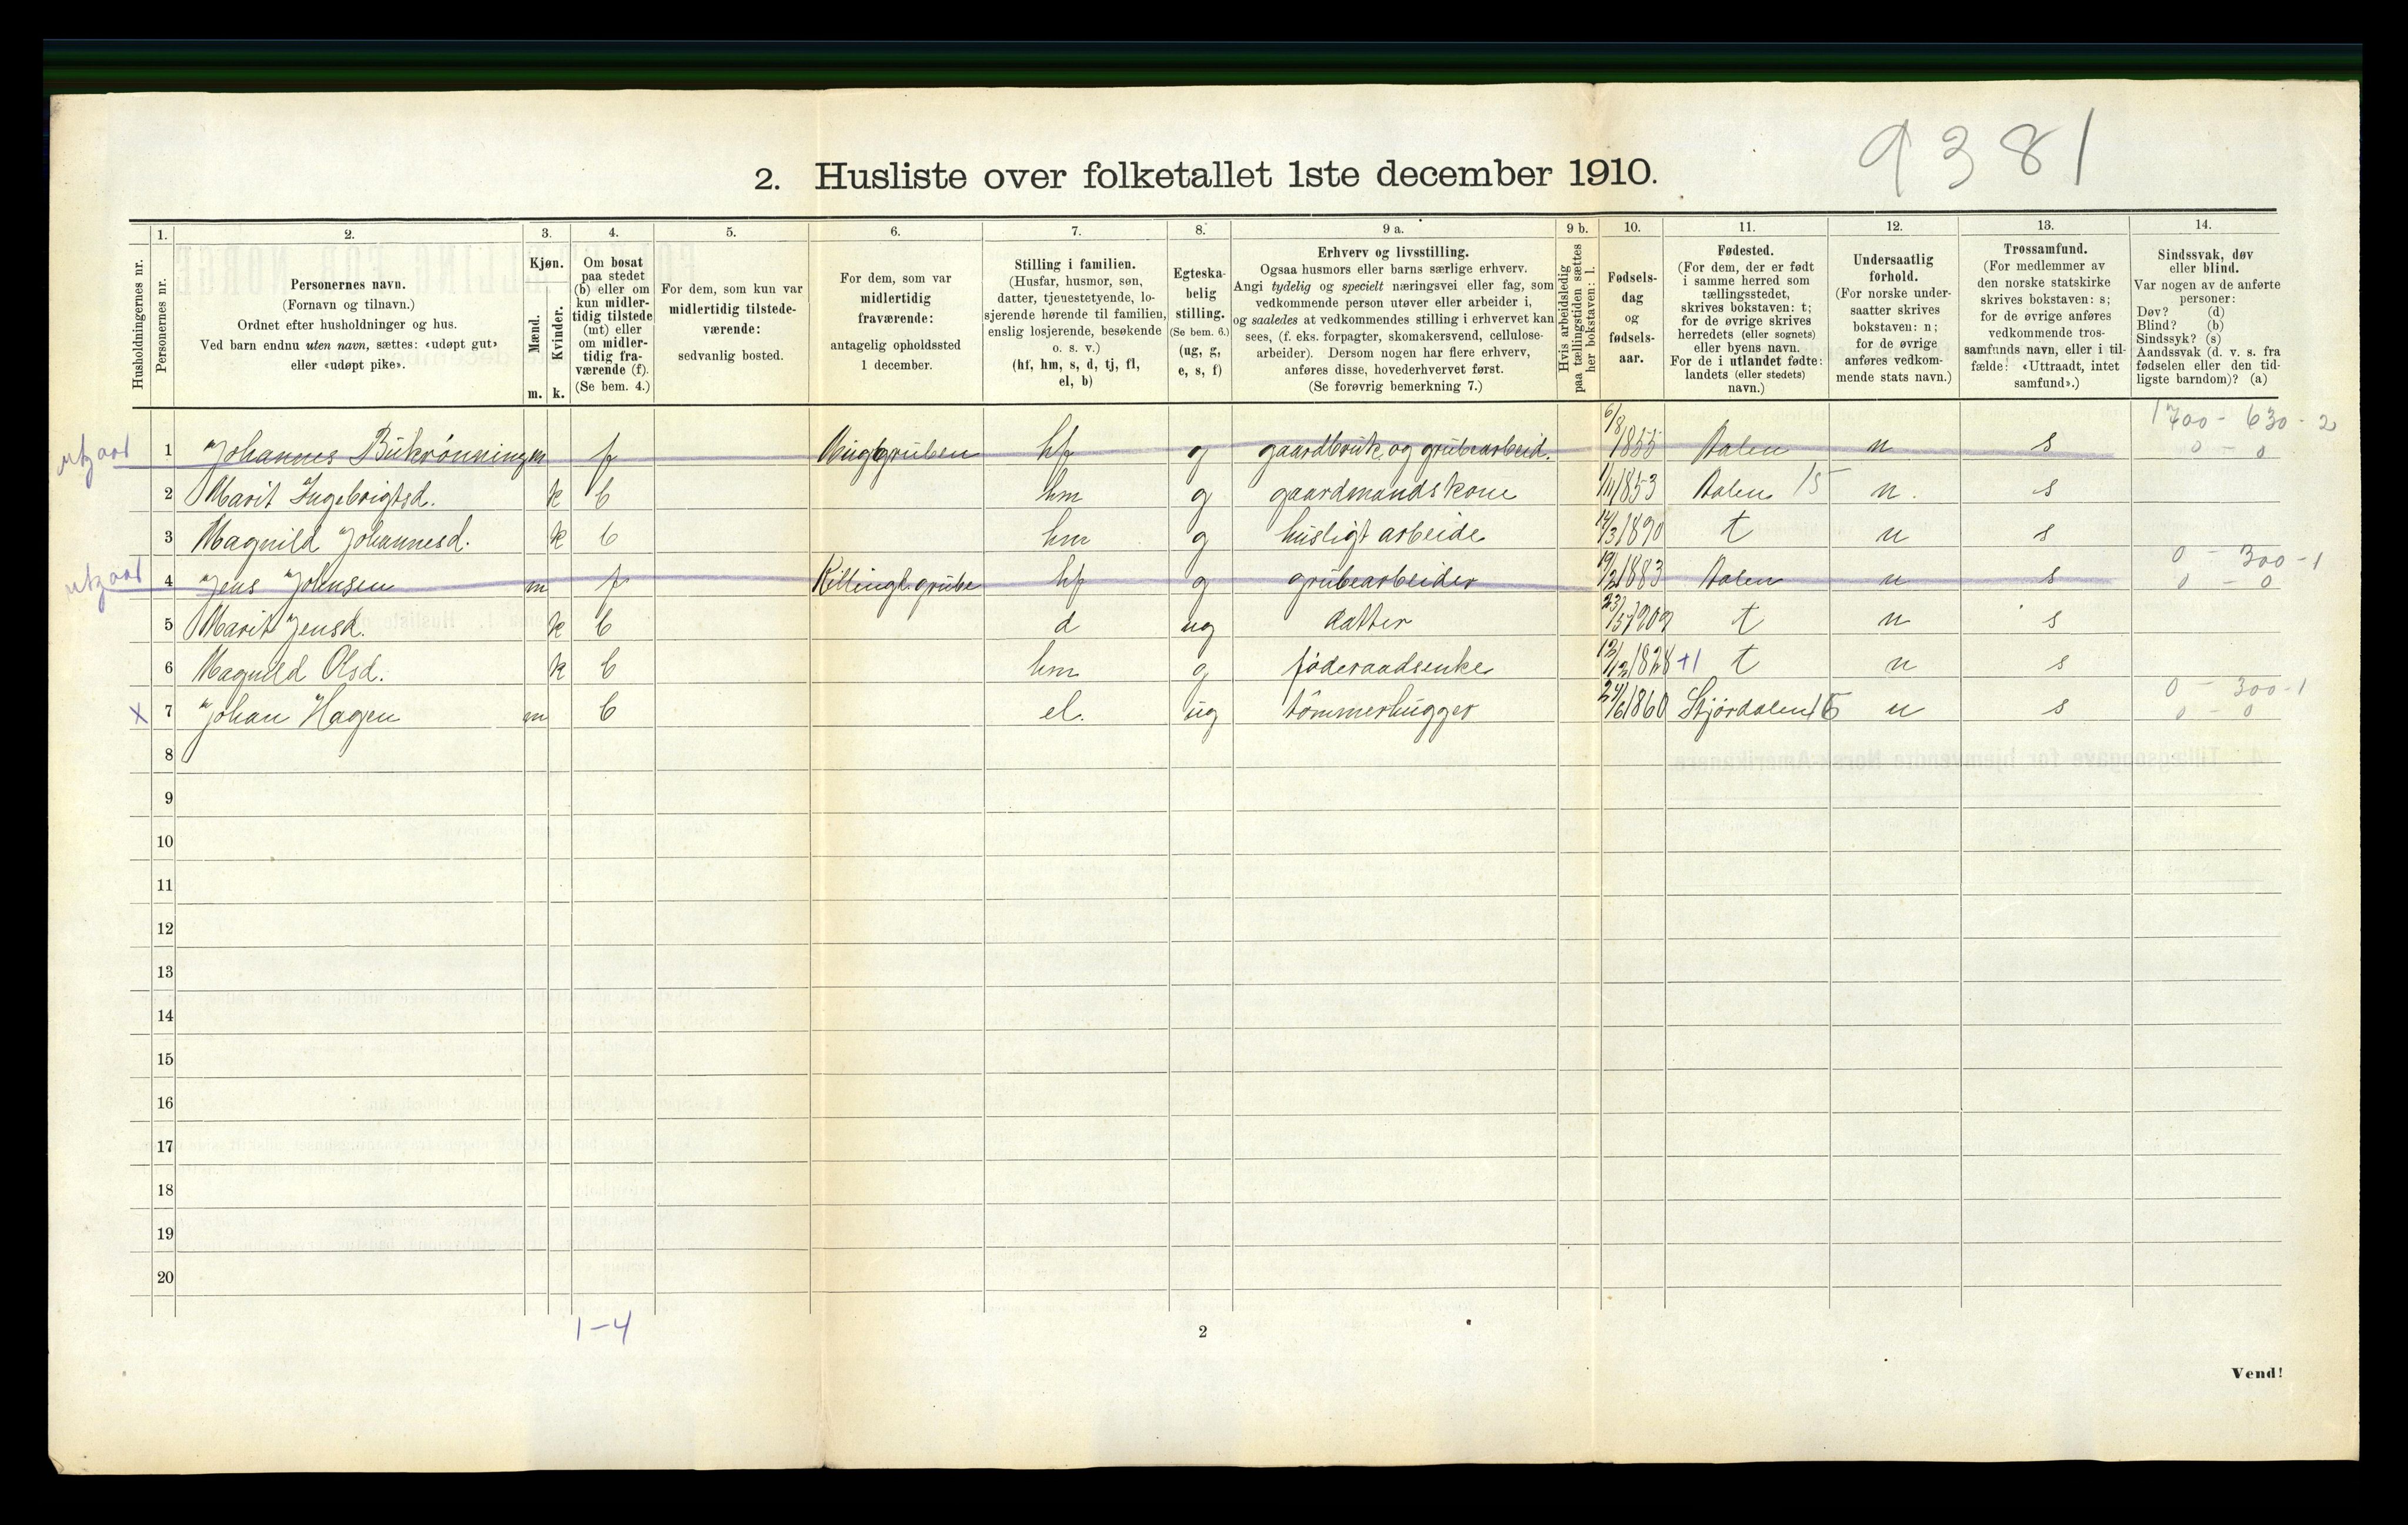 9381
2. Husliste over folketallet 1ste december 1910.
1. 2. 3. 4. 5. 6. 7. 8. 9 a. 9 b. 10. 11. 12. 13. 14.
Husholdningernes nr.
Personernes nr.
Personernes navn.
(Fornavn og tilnavn.)
Ordnet efter husholdninger og hus.
Ved barn endnu uten navn, sættes: «udøpt gut»
eller «udøpt pike».
Kjøn.
Mænd.
Kvinder.
m. k.
Om bosat
paa stedet
(b) eller om
kun midler-
tidig tilstede
(mt) eller
om midler-
tidig fra-
værende (f).
(Se bem. 4.)
For dem, som kun var
midlertidig tilstede-
værende:
sedvanlig bosted.
For dem, som var
midlertidig
fraværende:
antagelig opholdssted
1 december.
Stilling i familien.
(Husfar, husmor, søn,
datter, tjenestetyende, lo-
sjerende hørende til familien,
enslig losjerende, besøkende
o. s. v.)
(hf, hm, s, d, tj, fl,
el, b)
Egteska-
belig
stilling.
(Se bem. 6.)
(ug, g,
e, s, f)
Erhverv og livsstilling.
Ogsaa husmors eller barns særlige erhverv.
Angi tydelig og specielt næringsvei eller fag, som
vedkommende person utøver eller arbeider i,
og saaledes at vedkommendes stilling i erhvervet kan
sees, (f. eks. forpagter, skomakersvend, cellulose-
arbeider). Dersom nogen har flere erhverv,
anføres disse, hovederhvervet først.
(Se forøvrig bemerkning 7.)
Hvis arbeidsledig
paa tællingstiden sættes
her bokstaven: l.
Fødsels-
dag
og
fødsels-
aar.
Fødested.
(For dem, der er født
i samme herred som
tællingsstedet,
skrives bokstaven: t;
for de øvrige skrives
herredets (eller sognets)
eller byens navn.
For de i utlandet fødte:
landets (eller stedets)
navn.)
Undersaatlig
forhold.
(For norske under-
saatter skrives
bokstaven: n;
for de øvrige
anføres vedkom-
mende stats navn.)
Trossamfund.
(For medlemmer av
den norske statskirke
skrives bokstaven: s;
for de øvrige anføres
vedkommende tros-
samfunds navn, eller i til-
fælde: «Uttraadt, intet
samfund».)
Sindssvak, døv
eller blind.
Var nogen av de anførte
personer:
Døv? (d)
Blind? (b)
Sindssyk? (s)
Aandssvak (d. v. s. fra
fødselen eller den tid-
ligste barndom)? (a)
1700 - 630 - 2
1 Johannes Bukrønningen f hf g gaardbruk og grubearbeid. 6/8 1855 Aalen n s 0 - 0
2 Marit Ingebrigtsd. k b hm g gaardmandskone 1/11 1853 Aalen 15 n. s
3 Magnild Johannesd. k b hm g husligt arbeide 14/3 1890 t n s
0 - 300 - 1
4 Jens Johnsen m f Killingd. grube hf g grubearbeider 19/2 1883 Aalen n s 0 - 0
5 Marit Jensd. k b d ug datter 23/5 1909 t n s
6 Magnild Olsd. k b hm g føderaadsenke 12/12 1828 +1 t n s
0 - 300 - 1
x 7 Johan Hagen m b el. ug tømmerhugger 24/6 1860 Stjørdalen 15 n s 0 - 0
8
9
10
11
12
13
14
15
16
17
18
19
20
1-4
2
Vend!